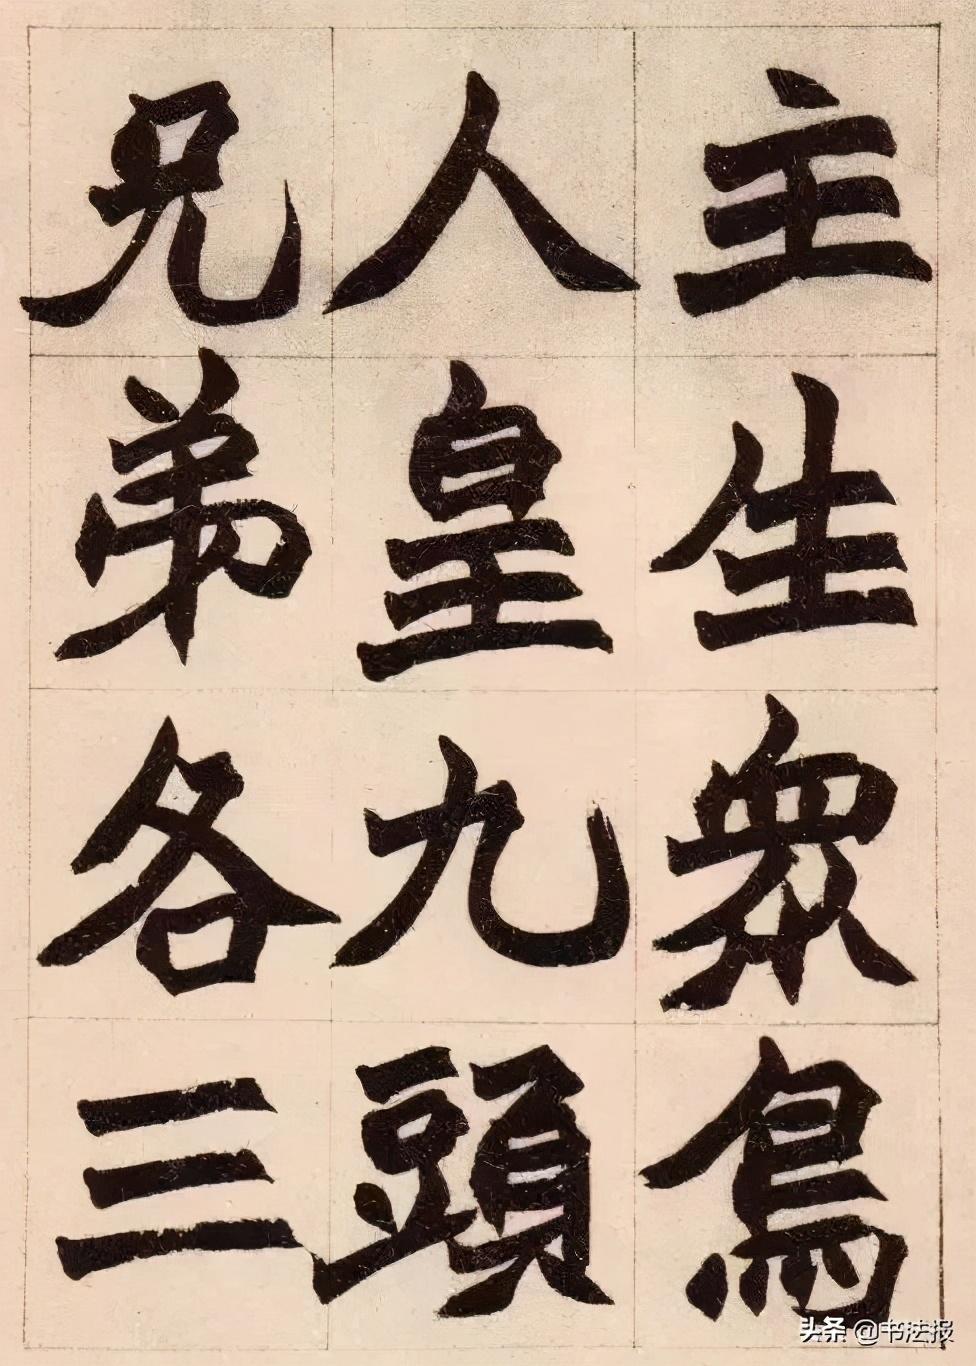 主生眾鳥
人皇九頭
兄弟各三
头条 @书法报